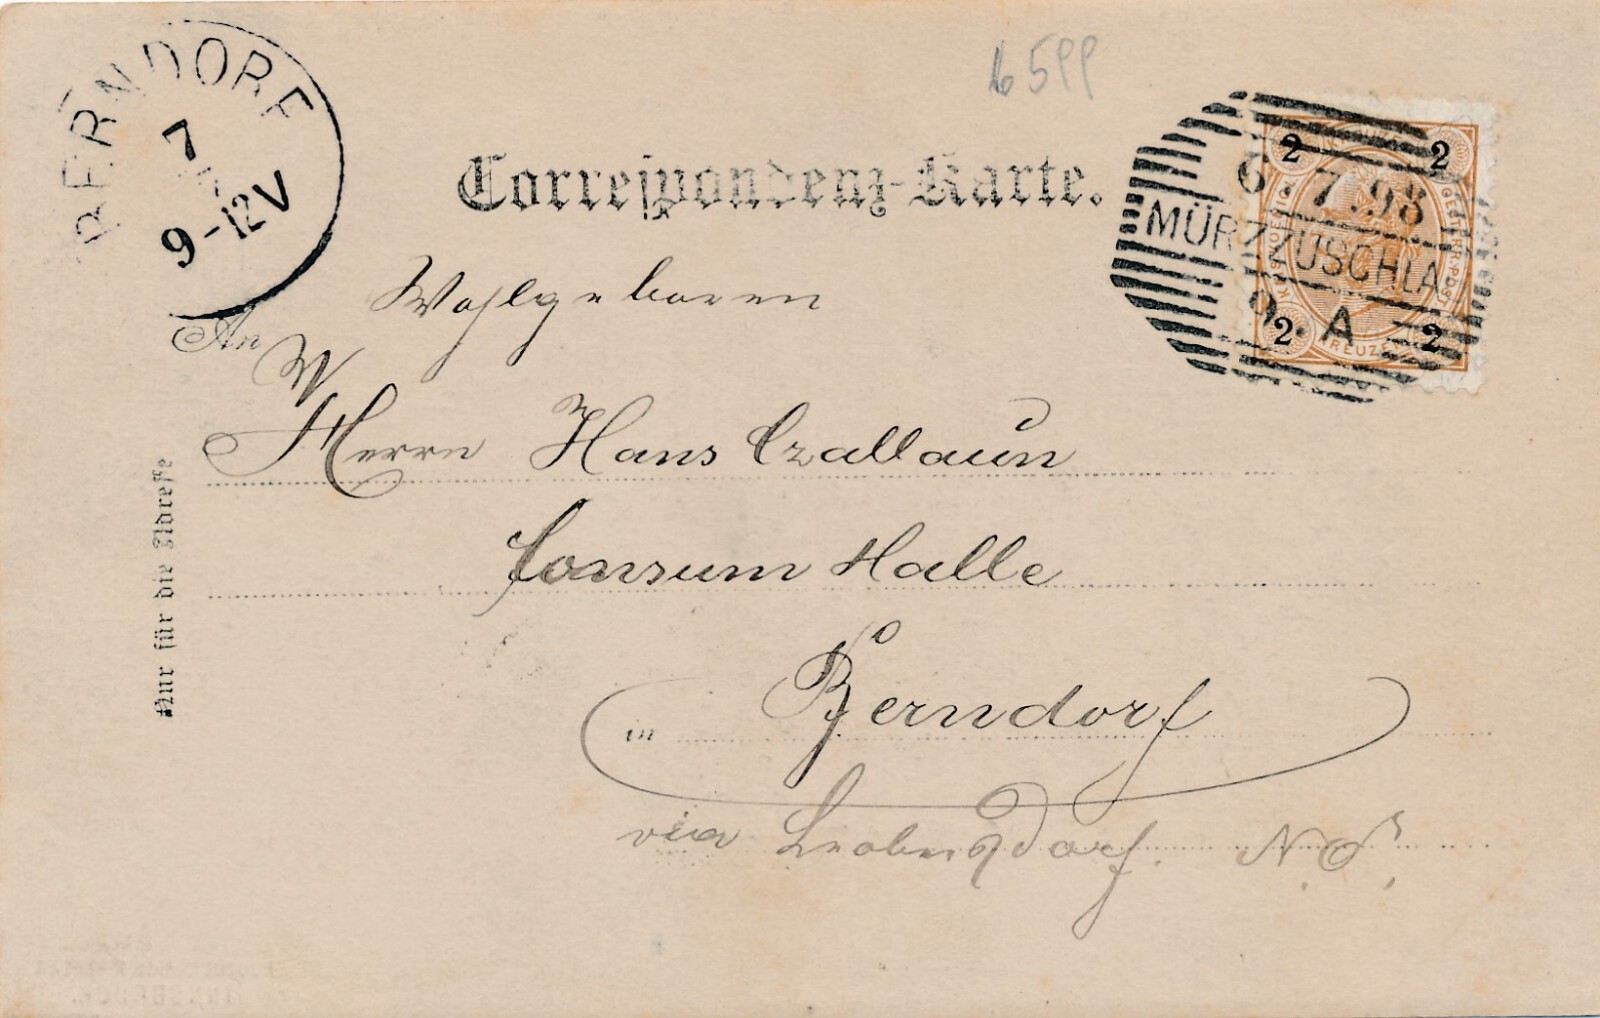 BERNDORF
7
9-12V
6599
Correspondenz-Karte.
2 2
6.7.98
MÜRZZUSCHLA
9. A
2 KREUZER 2
Wohlgeboren
An
Herrn Hans Czallaun
Consum Halle
in Berndorf
via Leobersdorf. N.Ö.
Nur für die Adresse